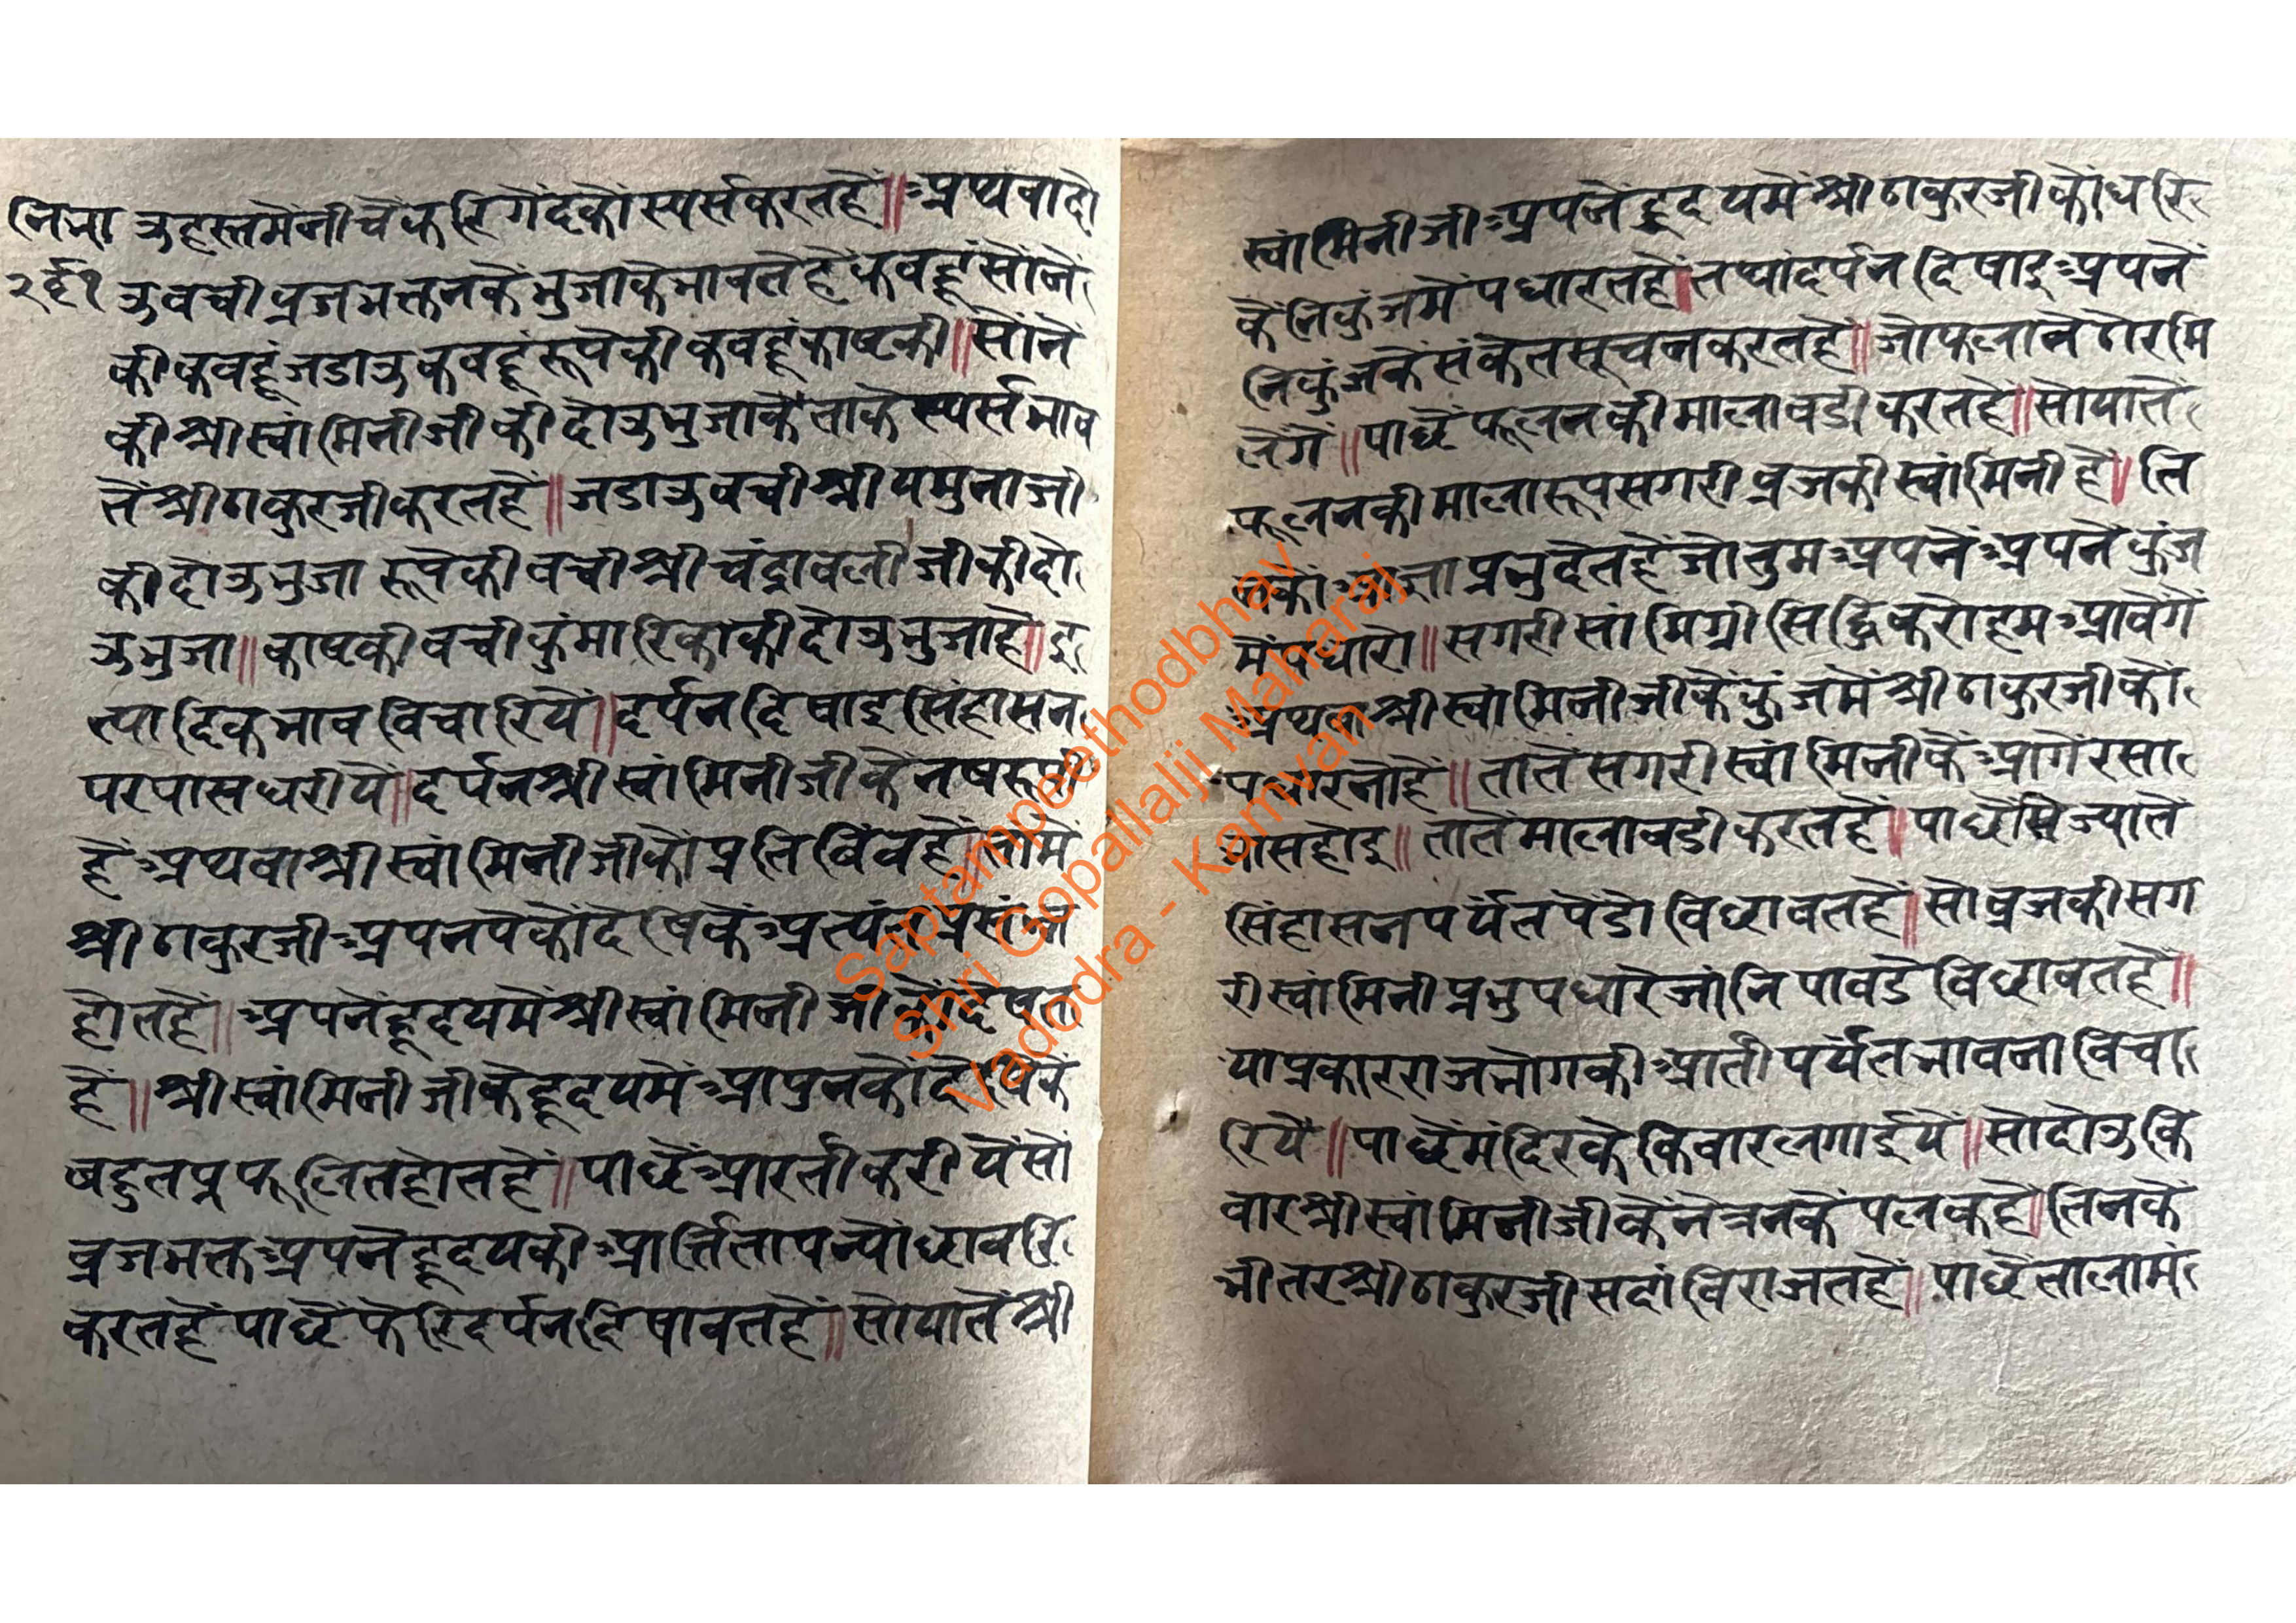 नि भा
२९१
ऊहस्तमेंनीचेंकरिगेंदकोंस्पर्सकरतहें॥अथवादो
ऊवची व्रजभक्तनकें भुजाके भावतेहें कबहूं सोंनें
की कबहूं जडाऊ कबहूं रूपेकी कबहूं काष्टकी॥सोंने
की श्रीस्वांमिनीजीकी दोऊभुजाके ताके स्पर्स भाव
तें श्रीठाकुरजी करतहें॥जडाऊवची श्रीयमुनाजी
की दोऊभुजा रूपेकी वची श्रीचंद्रावलीजीकी दो
ऊभुजा॥काष्टकी वची कुंमारिकाकी दोऊभुजाहे॥इ
त्यादिक भाव विचारियें॥दर्पन दिषाइ सिंहासन
पर पास धरीयें॥दर्पन श्रीस्वांमिनीजीके नषरूपी
हें अथवा श्रीस्वांमिनीजीको प्रतिबिंबहें॥तामें
श्रीठाकुरजी अपनपेकों देषिकें अत्यंत प्रसंन्न
होतहें॥अपनें हृदयमें श्रीस्वांमिनीजीकों देषत
हें॥श्रीस्वांमिनीजीके हृदयमें आपुनकों देषिकें
बहुत प्रफुलित होतहें॥पाछें आरती करीयें सो
व्रजभक्त अपने हृदयकी आर्त्तिताप न्योछावरि
करतहें पाछें फेरि दर्पन दिषावतहें॥सोयातें श्री
स्वांमिनीजी अपनें हृदयमें श्रीठाकुरजीकों धरि
कें निकुंजमें पधारतहें॥तथां दर्पन दिषाइ अपनें
निकुंजके संकेत सूचन करतहें॥जो फलाने ठोर मि
लेंगें॥पाछें फूलनकी माला बडी करतहे॥सोयातें
फूलनकी मालारूप सगरी व्रजकी स्वांमिनी हें॥ति
नकों आज्ञा प्रभु देतहें जो तुम अपनें अपनें कुंज
में पधारो॥सगरी सांमिग्री सिद्धि करो हम आवेंगें
अथवा श्रीस्वांमिनीजीकें कुंजमें श्रीठाकुरजीकों
पधारनोहें॥तातें सगरी स्वांमिनीकें आगें रसा
भास होइ॥तातें माला बडी करतहें॥पाछें सिज्यातें
सिंहासन पर्यंत पेंडो विछावतहें॥सो व्रजकी सग
री स्वांमिनी प्रभु पधारे जांनि पावडे विछावतहें॥
या प्रकार राजभोगकी आर्ती पर्यंत भावना विचा
रियें॥पाछें मंदिरके किवार लगाईयें॥सो दोऊ कि
वार श्रीस्वांमिनीजीकें नेत्रनकें पलकहें॥तिनकें
भीतर श्रीठाकुरजी सदां विराजतहें॥पाछें तालामं
Saptampeethodbhav
Shri Gopallalji Maharaj
Vadodra - Kamvan